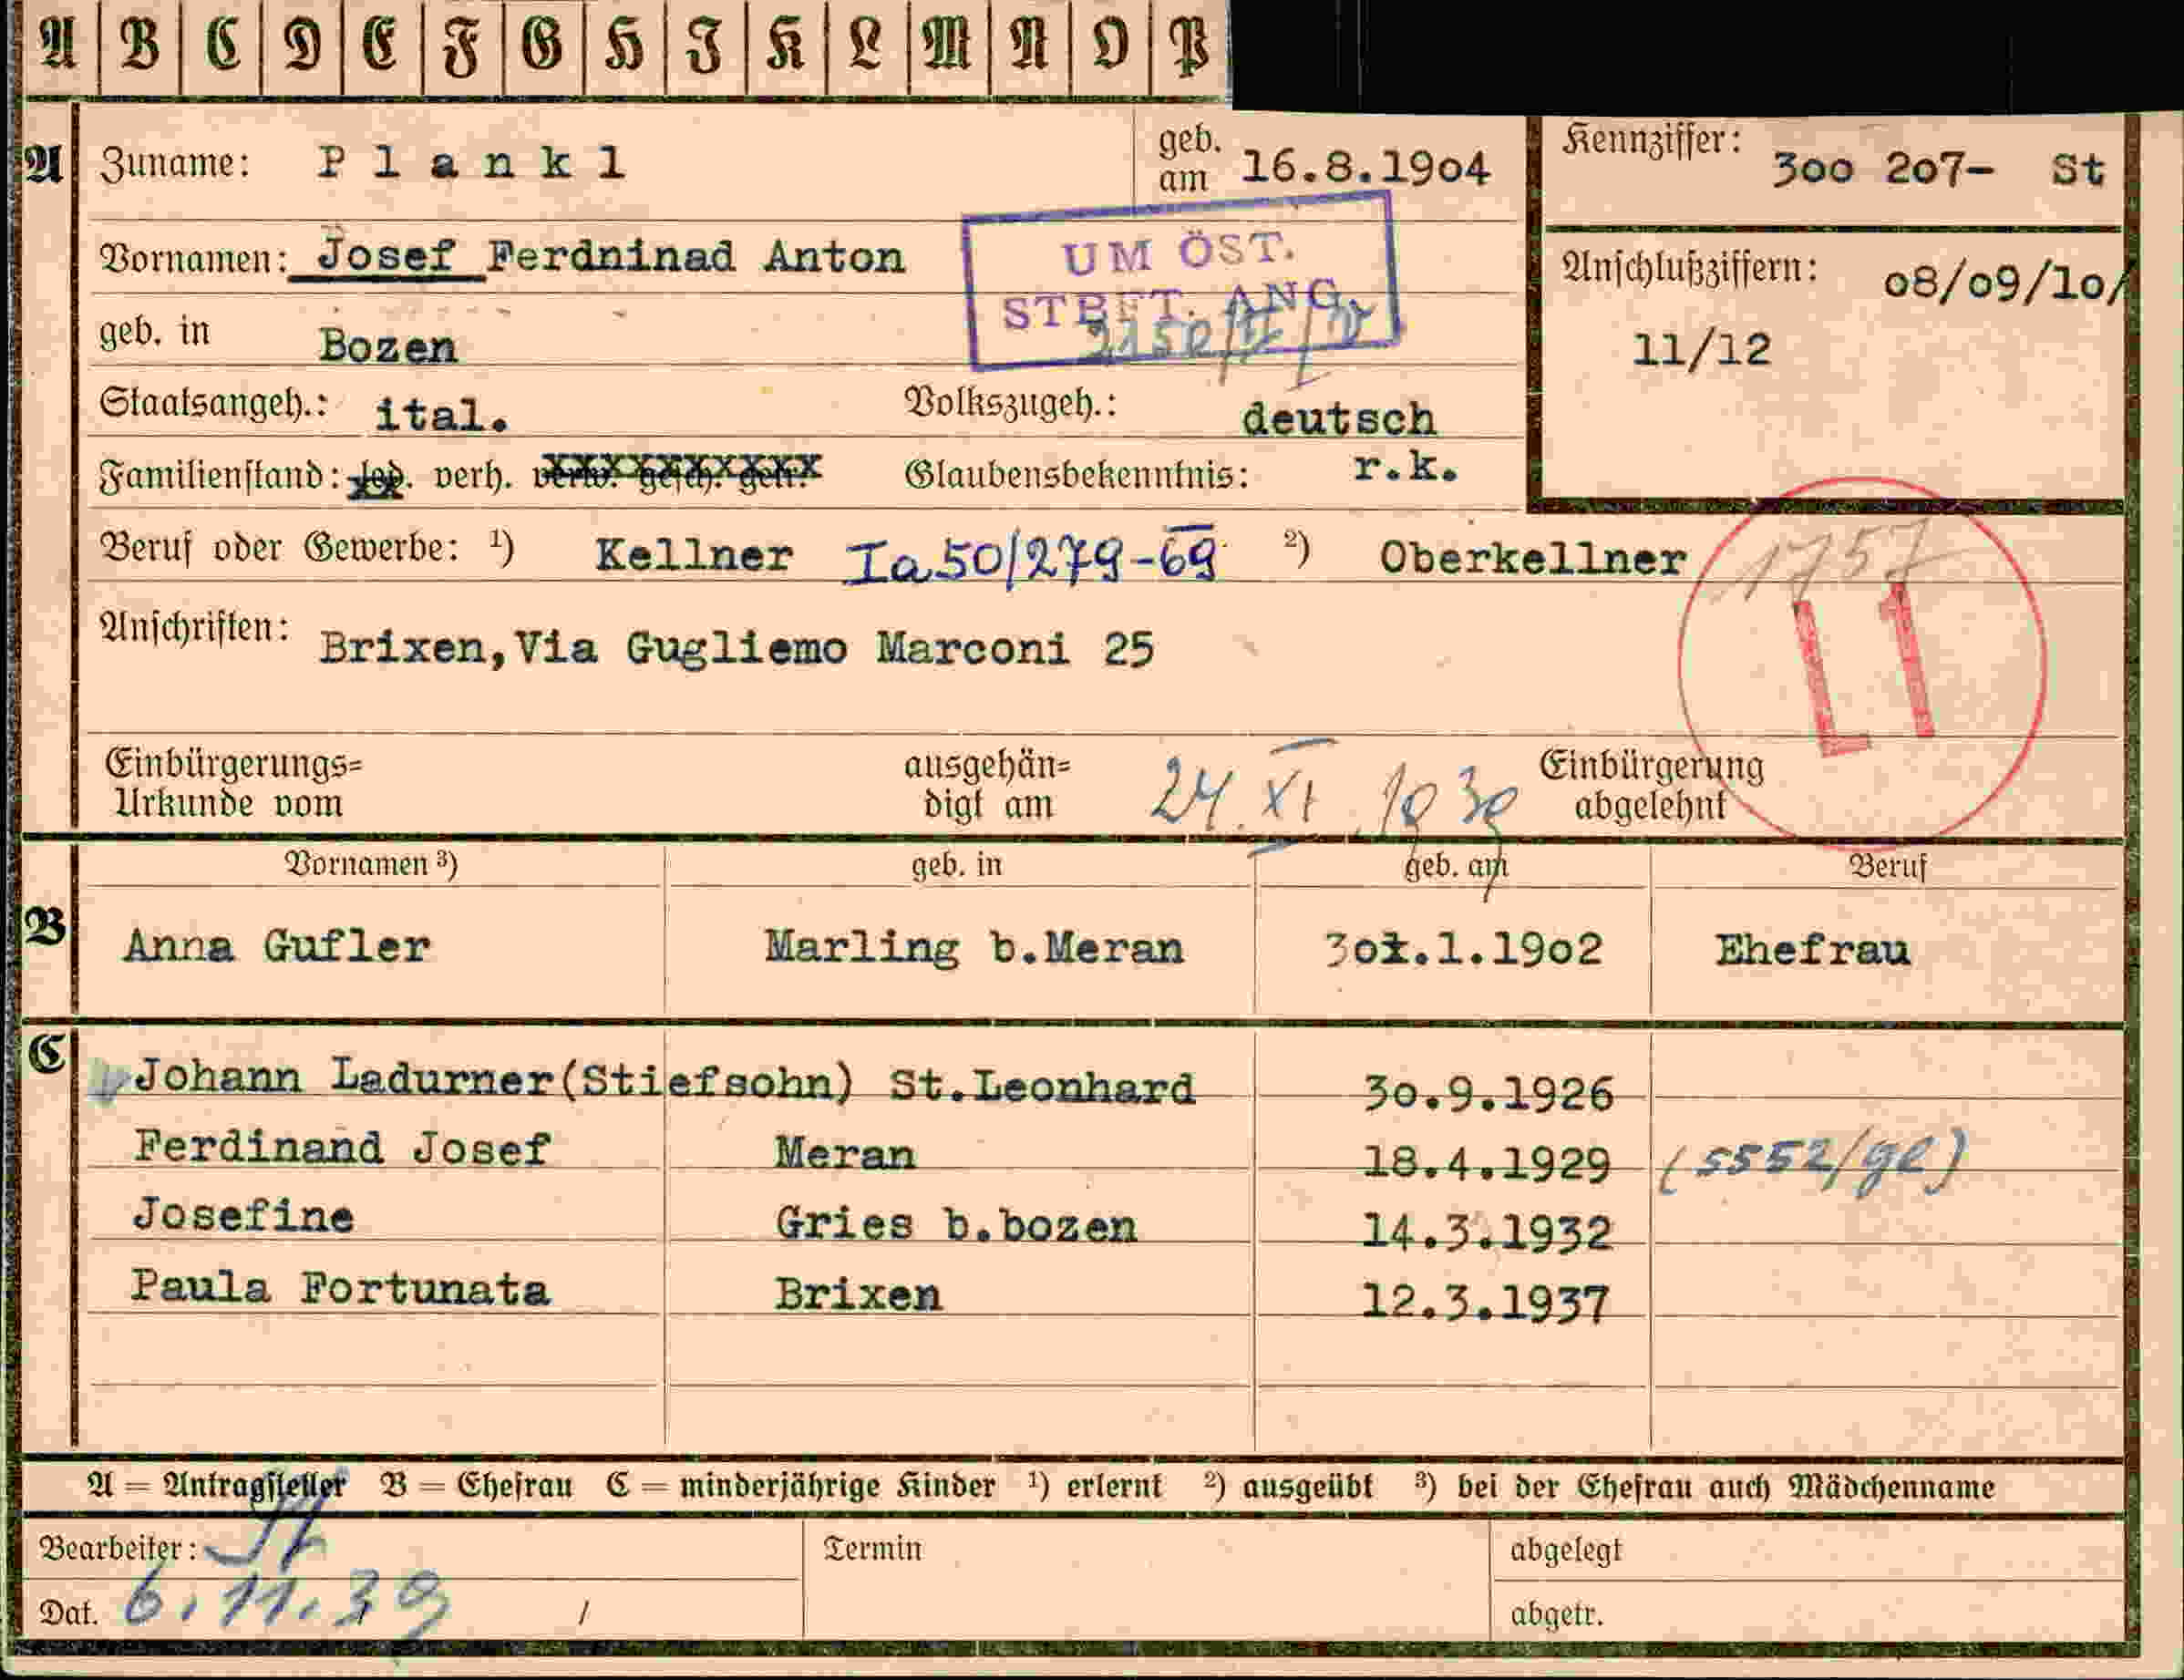 A B C D E F G H I K L M N O P
A Zuname: Plankl geb. am 16.8.1904 Kennziffer: 300 207- St
Vornamen: Josef Ferdninad Anton
UM ÖST.
STBFT. ANG.
Anschlußziffern: 08/09/10/
11/12
geb. in Bozen
Staatsangeh.: ital. Volkszugeh.: deutsch
Familienstand: led. verh. verw. gesch. getr. Glaubensbekenntnis: r.k.
Beruf oder Gewerbe: 1) Kellner Ia50/279-69 2) Oberkellner 1757
L1
Anschriften: Brixen,Via Gugliemo Marconi 25
Einbürgerungs= Urkunde vom ausgehän= digt am 24. XI. 1939 Einbürgerung abgelehnt
Vornamen 3) geb. in geb. am Beruf
B Anna Gufler Marling b.Meran 30.1.1902 Ehefrau
C Johann Ladurner(Stiefsohn) St.Leonhard 30.9.1926
Ferdinand Josef Meran 18.4.1929 (5552/gl)
Josefine Gries b.bozen 14.3.1932
Paula Fortunata Brixen 12.3.1937
A = Antragsteller B = Ehefrau C = minderjährige Kinder 1) erlernt 2) ausgeübt 3) bei der Ehefrau auch Mädchenname
Bearbeiter: St Termin abgelegt
Dat. 6.11.39 / abgetr.